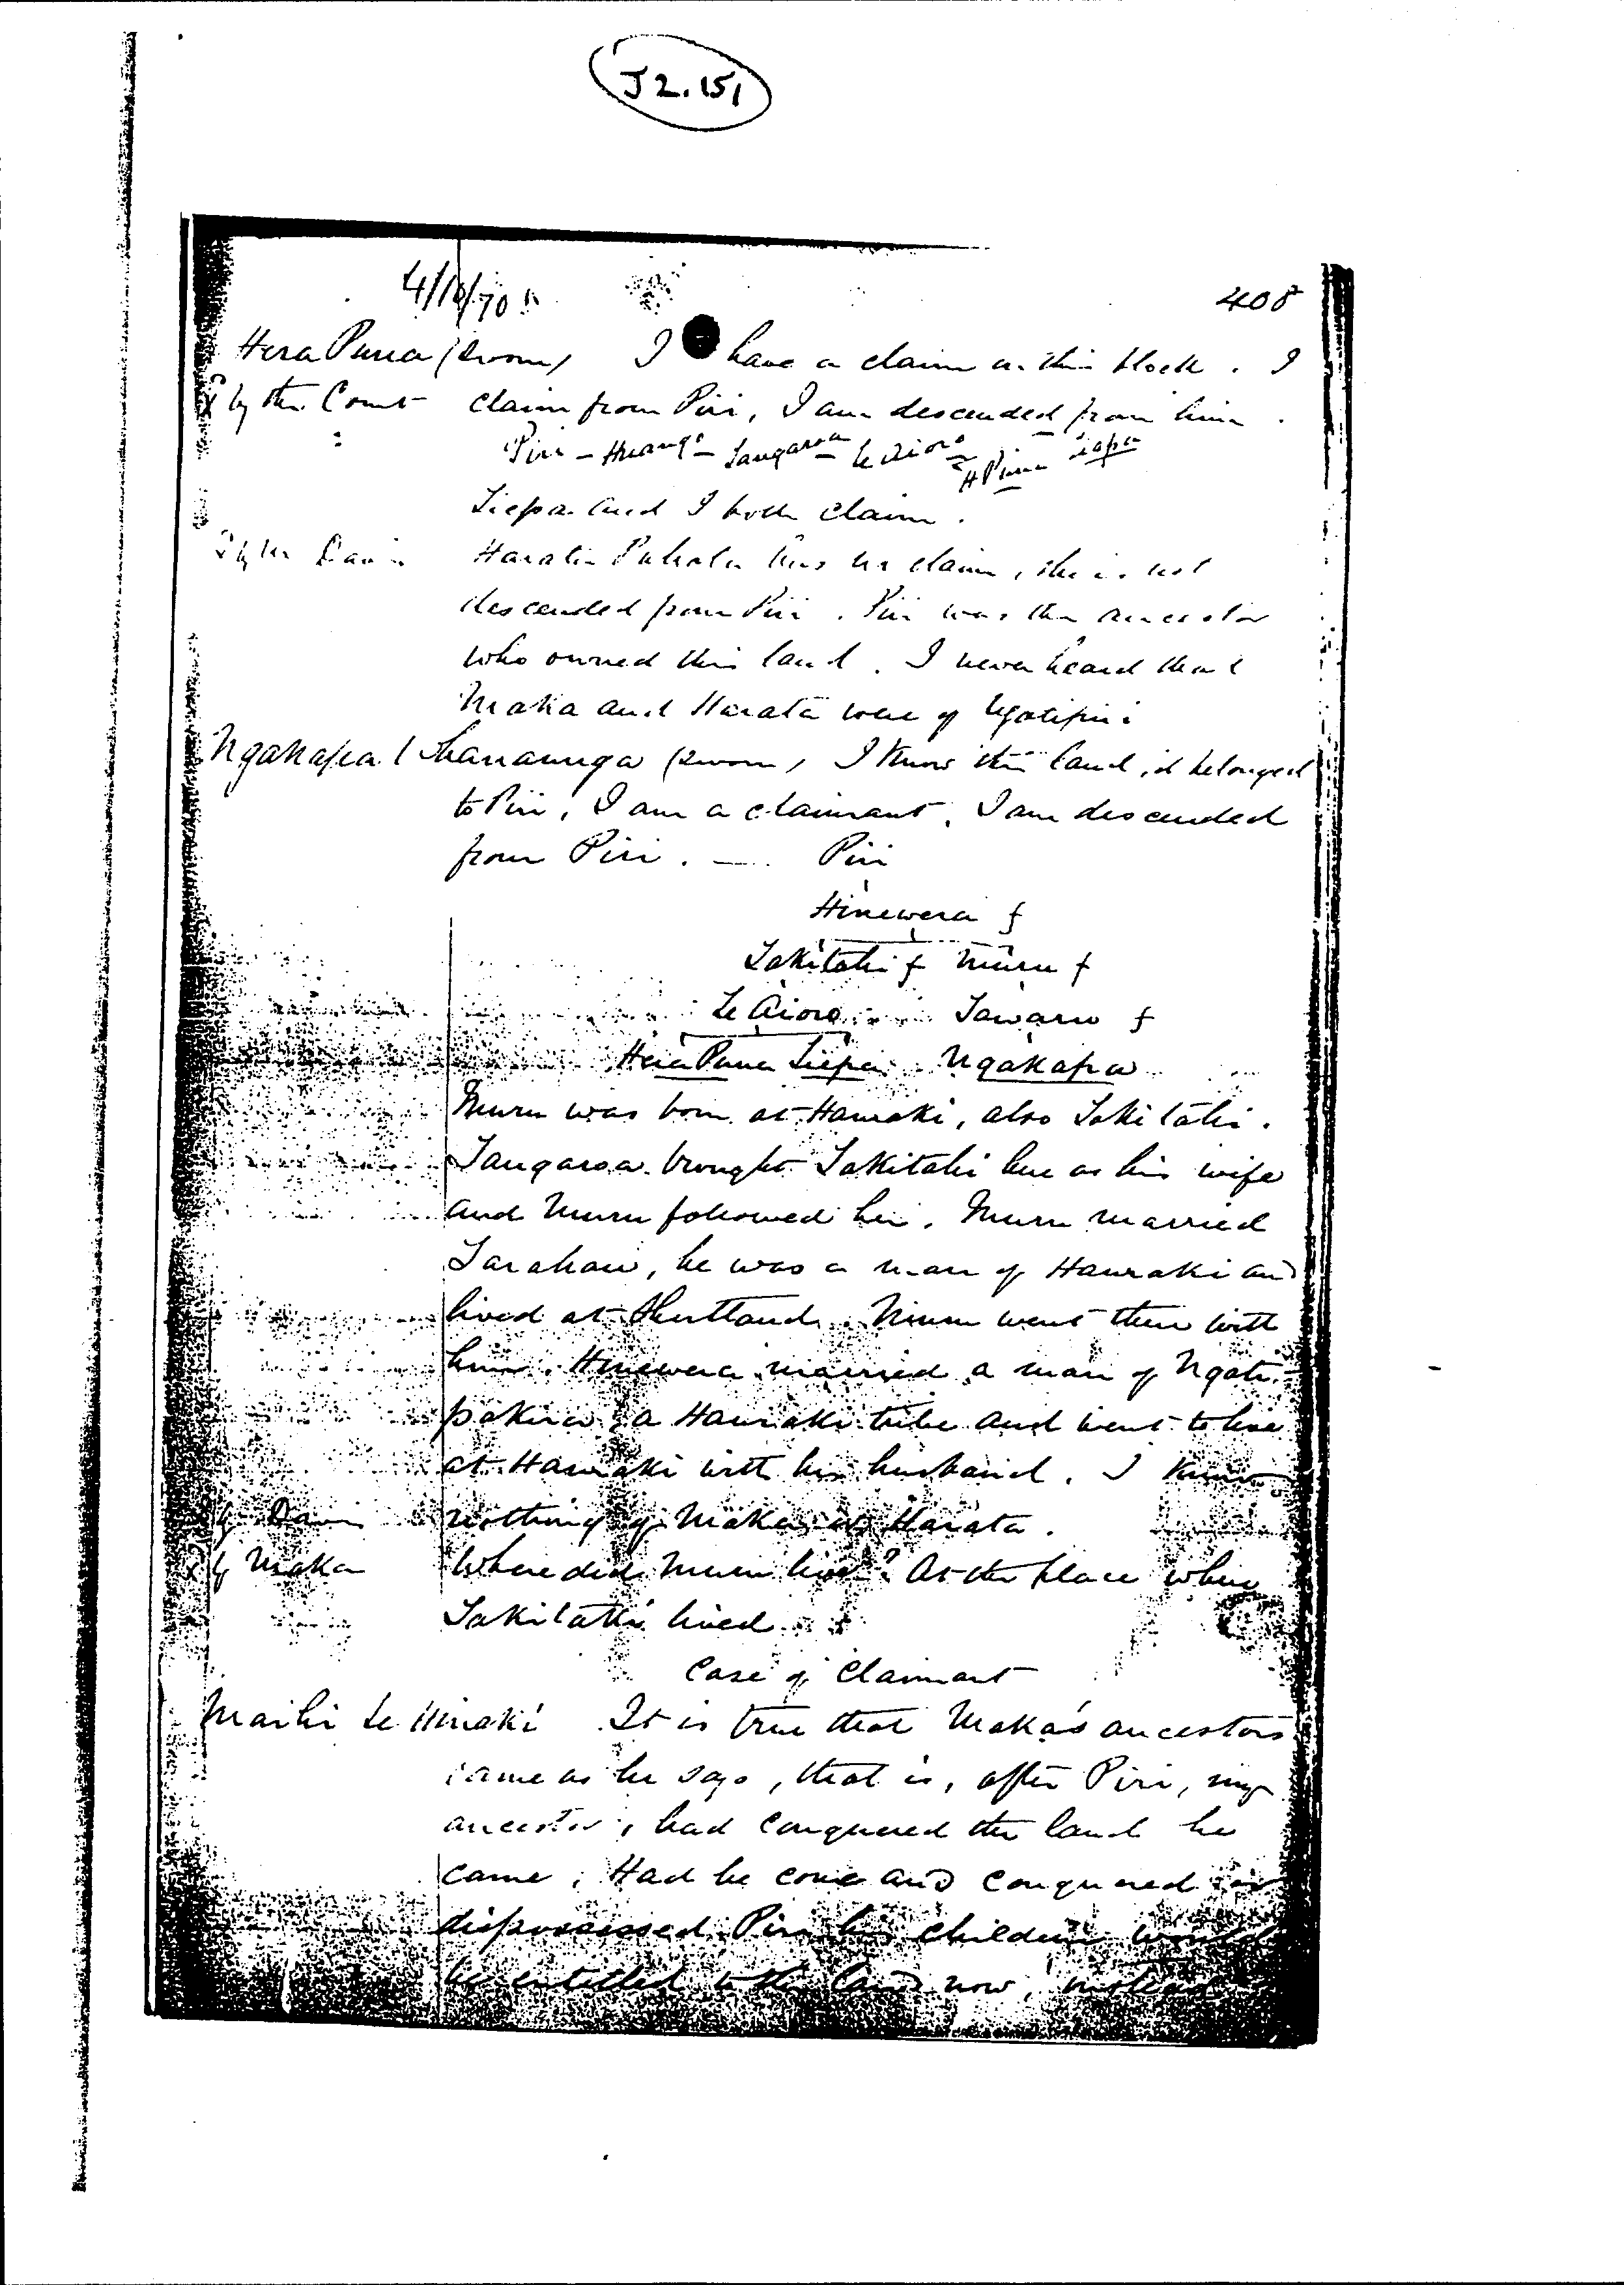 J2.151
4/10/70
408
Hera Puna (sworn) I have a claim in this block. I
X by the Court claim from Piri, I am descended from him.
Piri - Huangi - Tangaroa - Te Aioro - H Puna Tiepa
Tiepa and I both claim.
X by Mr Davis Harata has no claim, she is not
descended from Piri. Piri was the ancestor
who owned this land. I never heard that
Maka and Harata were of Ngatipiri
Ngakapa Whanaunga (sworn) I know this land, it belonged
to Piri, I am a claimant, I am descended
from Piri. — Piri
Hinewera f
Takitahi f Muru f
Te Aioro Tawaru f
Hera Puna Tiepa Ngakapa
Muru was born at Hauraki, also Takitahi.
Tangaroa brought Takitahi here as his wife
and Muru followed her. Muru married
Tarahau, he was a man of Hauraki and
lived at Shortland. Muru went there with
him. Hinewera married a man of Ngati
, a Hauraki tribe and went to live
at Hauraki with her husband. I know
X by Davis nothing of Maka or Harata.
X by Maka Where did Muru live? At the place where
Takitahi lived
Case of Claimant
Maihi Te Hinaki It is true that Maka's ancestors
came as he says, that is, after Piri, my
ancestor, had conquered the land he
came. Had he come and conquered or
dispossessed Piri his children would
be entitled to the land now, instead